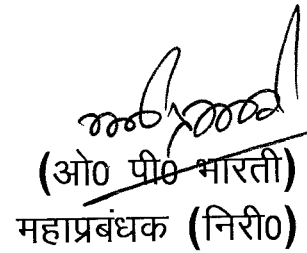 (ओ0 पी0 भारती)
महाप्रबंधक (निरी0)